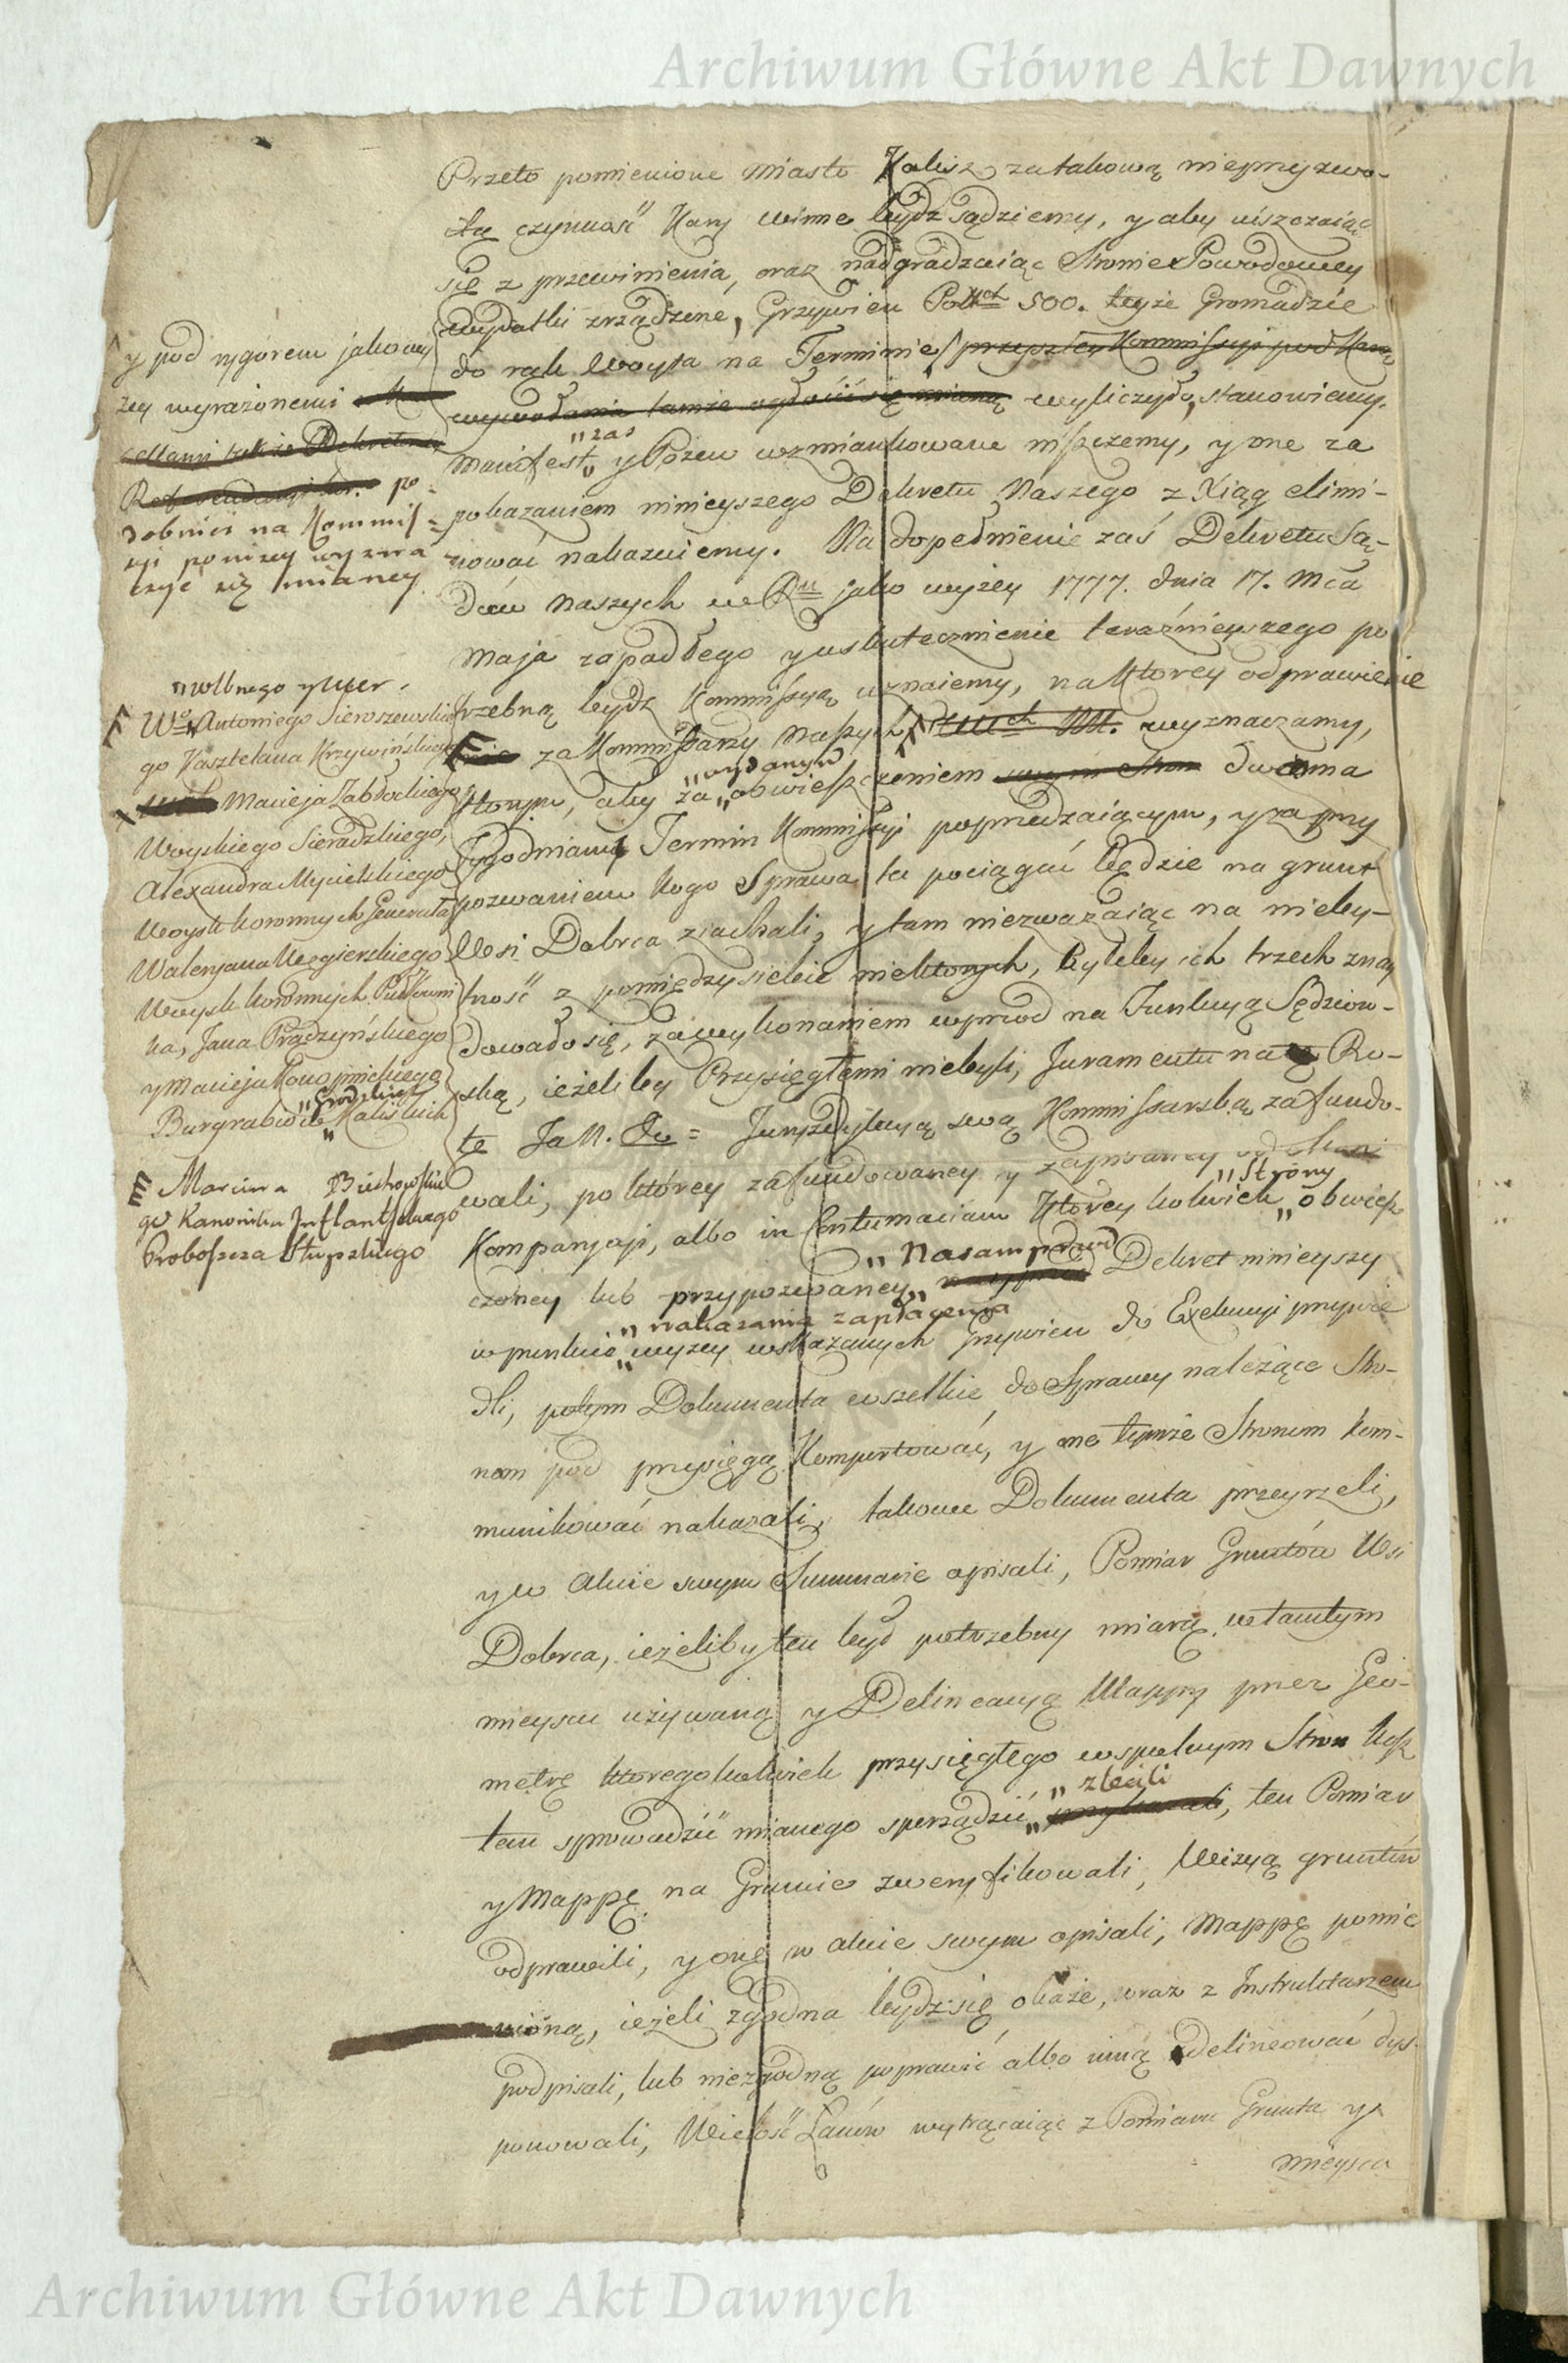 Archiwum Główne Akt Dawnych
Przeto pomienione Miasto Kalisz za takową nieprzyzwo-
itą czynność Kary winne bydź sądziemy, y aby uiszczaiąc
się z przewinienia, oraz nadgradzaiąc Stronie Powodowey
wydatki zrządzone, Grzywien Polskich 500. teyże Gromadzie
do rąk Woyta na Terminie przyszłey Kommissyi pod Karą
wyliczyło, stanowiemy.
Manifest „zaś y Pozew wzmiankowane niszczemy, y one za
pokazaniem ninieyszego Dekretu Naszego z Xiąg elimi-
nować nakazuiemy. Na dopełnienie zaś Dekretu Są-
dów Naszych w Ru jako wyżey 1777. dnia 17. Mca
Maja zapadłego y uskutecznienie teraźnieyszego po
trzebną bydź Kommissyą uznaiemy, na Ktorey odprawienie
za Kommissarzy Naszych wyznaczamy,
Ktorzy, aby za „wydanym obwieszczeniem dwoma
Tygodniami Termin Kommissyi poprzedzaiącym, y za przy
pozwaniem kogo Sprawa ta pociągać będzie na grunt
Wsi Dobrca ziachali, y tam niezważaiąc na nieby-
tność z pomiędzy siebie niektorych, byleby ich trzech znay
dowało się, za wykonaniem wprzod na Funkcyą Sędziow-
ską, ieżeliby Przysięgłemi niebyli, Juramentu na Ro-
tę Ja N. Jurysdykcyą swą Kommissarską zafundo-
wali, po ktorey zafundowaney y
Kompanyaji, albo in Contumaciam Ktorey kolwiek „Strony obwiesz
czoney lub przypozwaney „Nasamprzod Dekret ninieyszy
w punkcie „nakazania zapłacenia wyzey wskazanych Grzywien do Exekucyi przywie
dli, potym Dokumenta wszelkie do Sprawy należące Stro-
nom pod przysięgą Komportować, y one tymże Stronom kom-
munikować nakazali, takowe Dokumenta przeyrzeli,
y w akcie swym Summarie opisali, Pomiar Gruntów Wsi
Dobrca, ieżeliby ten był potrzebny miarą w tamtym
mieyscu używaną y Delineacyą Mappy przez Geo-
metrę ktoregokolwiek przysięgłego wspulnym Stron kosz
tem sprowadzić mianego sporządzić „zlecili, ten Pomiar
y Mappę na Gruncie zweryfikowali, Wizyą gruntów
odprawili, y onę w akcie swym opisali, Mappę pomie
nioną, ieżeli zgodna bydź się okaże, wraz z Instruktarzem
podpisali, lub niezgodną poprawić albo inną delineować dys-
ponowali, Wielość Łanów wytrącaiąc z Pomiaru Grunta y
mieysca
y pod rygorem jakowy
żey wyrażonemi
po
dobnież na Kommis-
syi poniżey wyzna
czyć się mianey
„Wolbnego y Wer.
Wo Antoniego Sieroszewskie
go Kasztelana Krzywińskiego
Macieja Zabłockiego
Woyskiego Sieradzkiego,
Alexandra Mycielskiego
Woysk koronnych Generała
Waleryana Węgierskiego
Woysk koronnych Pułkowni
ka, Jana Prądzyńskiego
y Macieja
Burgrabiow „Grodzkich Kaliskich
Marcina
go Kanonika Inflantskiego
Proboszcza Słupskiego
Archiwum Główne Akt Dawnych